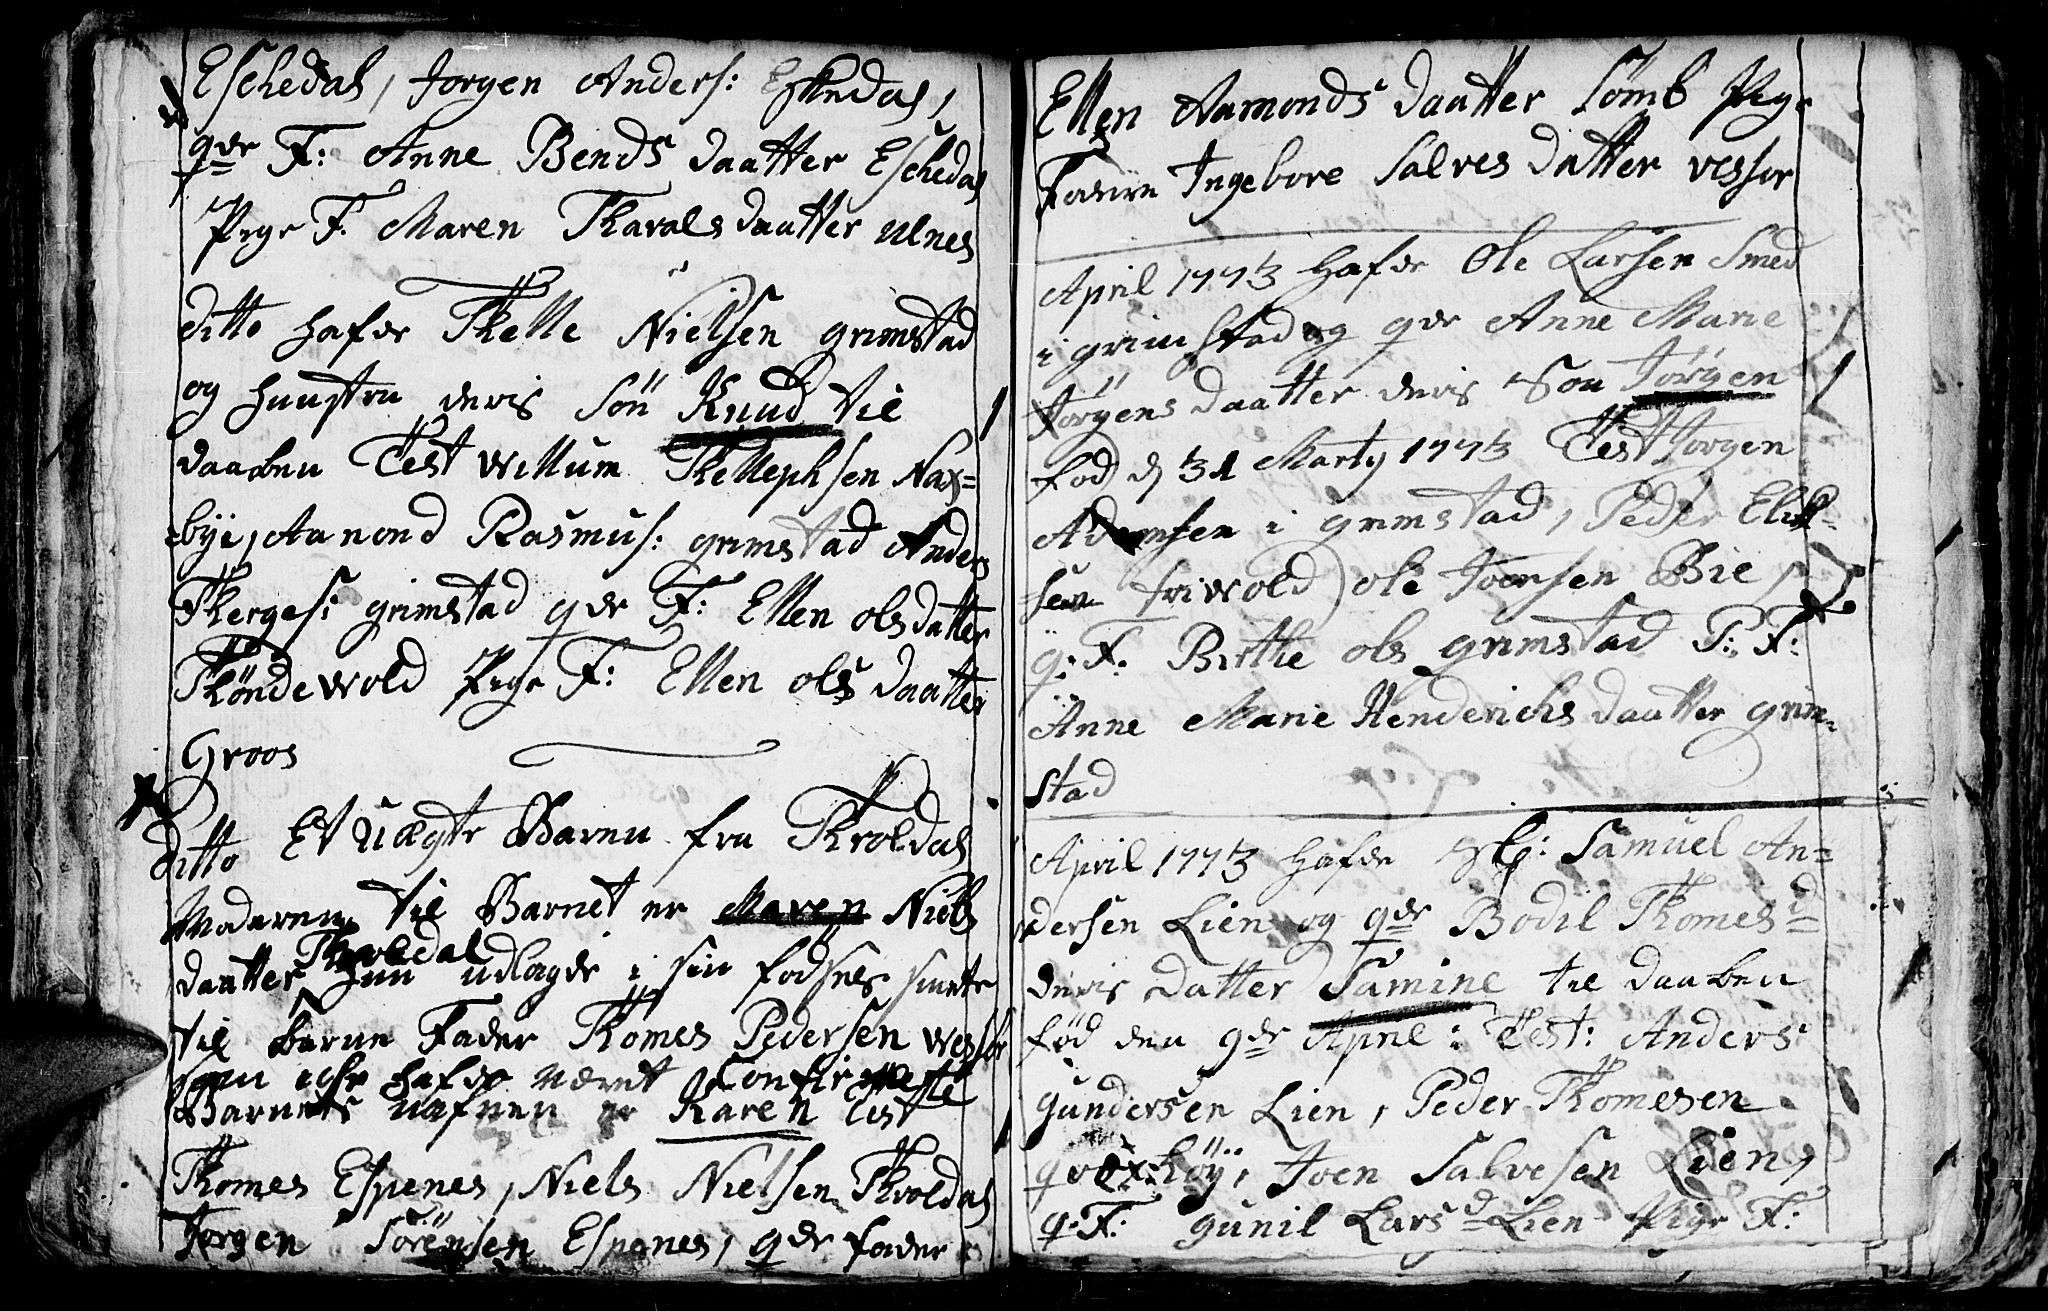 Eschedal, Jorgen Anders: Eskedal,
qvr F: Anne Bends daatter Eschedal
Pige F. Maren Tharals daatter ulnes
ditto hafde Thelle Nielsen grimstad
og huustru deris sön Knud til
daaben Test Willum Thellephsen Nax=
bye, Aanond Rasmus: grimstad Anders
Therges: grimstad qvr F: Ellen olsdatter
Thöndewold Pige F: Ellen ols daatter
Groos
ditto Et Uægte Barn fra Throldal
Moderen til Barnet er Maren Niels
daatter Throldal hun udlagde i sin fødsels smerte
til barne Fader Thomes Pedersen Wessøe
som icke hafde været Confirmerte
Barnets nafnen er Karen Test
Thomes Espenes, Niels Nielsen Throldal
Jorgen Sörensen Espenes, qvr fader
Ellen Aamonds daatter Sömb Pige
Faderen Ingebore Salves datter vessøe
April 1773 hafde Ole Larsen Smed
i grimstad og qvr Anne Marie
Jörgens daatter deris Søn Jörgen
fød d 31 Marty 1773 Test Jorgen
Adamsen i grimstad, Peder Elief=
sen friwold, ole Joensen Bie,
q. F. Birthe ols grimstad P: F:
Anne Marie Henderichs daatter grim=
stad
April 1773 hafde Sl: Samuel An=
dersen Lien og qvr Bodil Thomes d
deris datter Samine til daaben
fød den 9de Aprie: Test: Anders
gundersen Lien, Peder Thomesen
qvoxhöÿ, Joen Salvesen Lien,
q. F: gunil Lars d Lien Pige F: